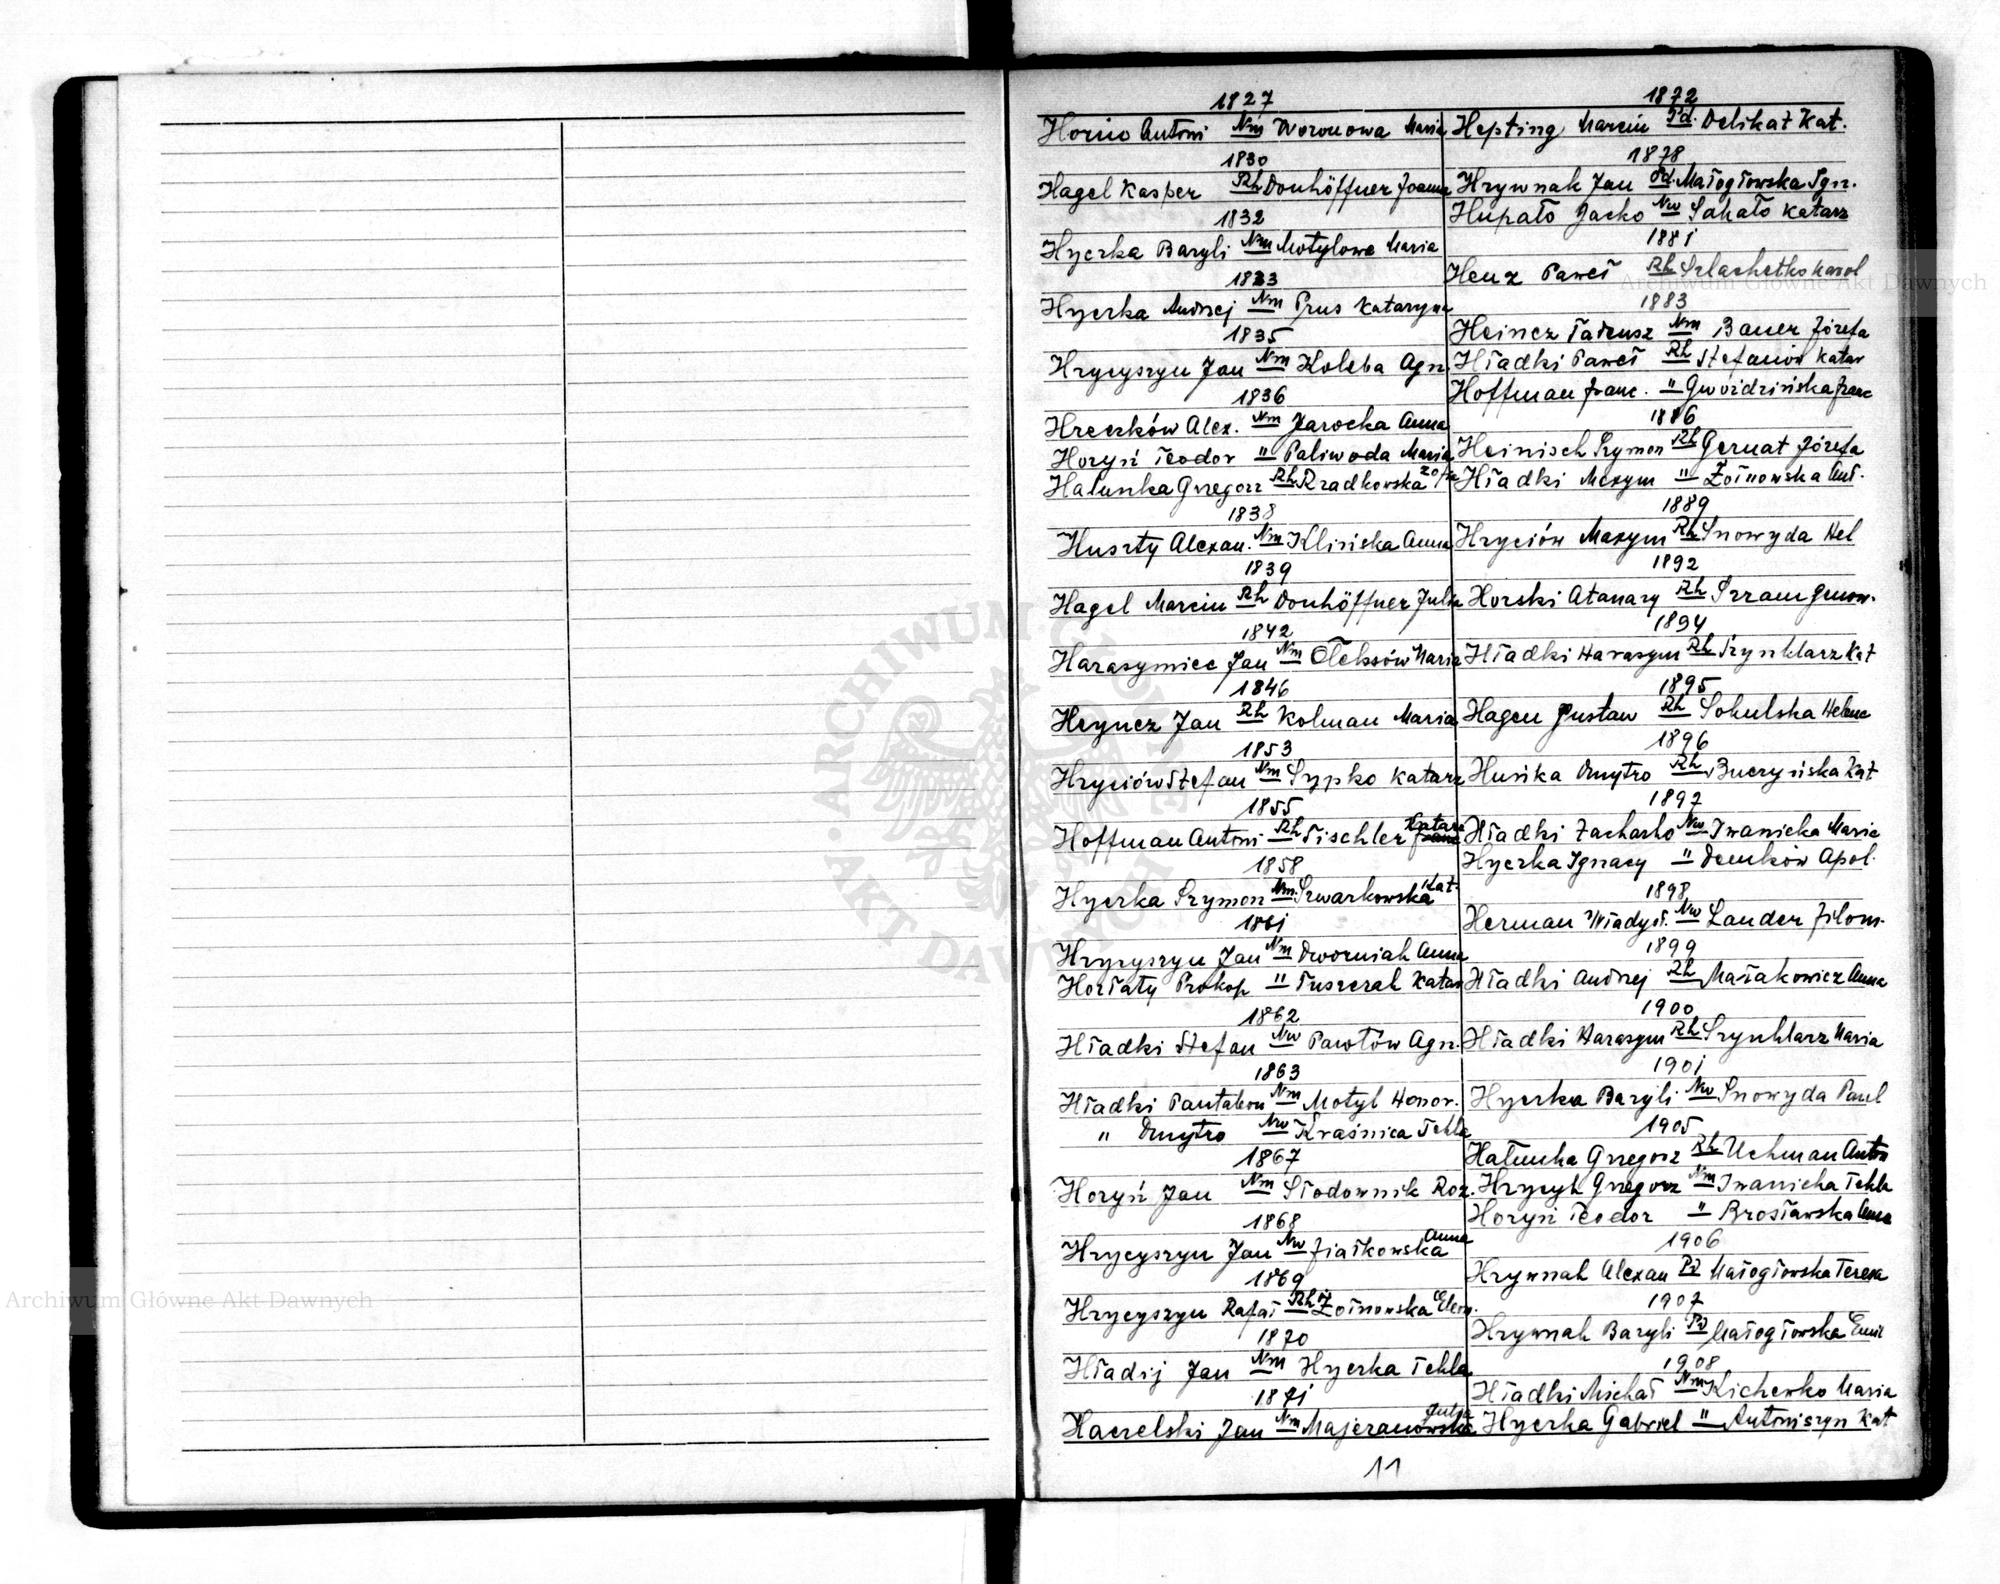 1827
Horno Antoni Nm Woronowa Maria
1830
Hagel Kasper Rh Donhöffner Joanna
1832
Hyerka Bazyli Nm Motylowa Maria
1833
Hyerka Andrzej Nm Prus Katarzyna
1835
Hrycyszyn Jan Nm Koleba Agn.
1836
Hreczków Alex. Nm Jarocka Anna
Horyń Teodor " Paliwoda Maria
Hałuszka Grzegorz Rh Rzadkowska Zofia
1838
Huszty Alexan. Nm Klińska Anna
1839
Hagel Marcin Rh Donhöffner Julia
1842
Harasymiec Jan Nm Ołeksów Maria
1846
Heyncz Jan Rh Kolman Maria
1853
Hryciów Stefan Nm Sypko Katarz
1855
Hoffman Antoni Rh Tischler Katarz
1858
Hyerka Szymon Nm. Szwarkowska Kat.
1861
Hrycyszyn Jan Nm Dworniak Anna
Horłaty Prokop " Tuszczak Katar
1862
Hładki Stefan Nw Pawłów Agn.
1863
Hładki Pantaleon Nm Motyl Honor.
" Dmytro Nw Kraśnica Tekla
1867
Horyń Jan Nm Słodownik Roz.
1868
Hrycyszyn Jan Nw Ziałkowska Anna
1869
Hrycyszyn Rafał Rh Żółnowska Eleon.
1870
Hładij Jan Nm Hyerka Tekla
1871
Haczelski Jan Nm Majeranowska Julia
1872
Hepting Marcin Pd. Delikat Kat.
1878
Hrywnak Jan Pd. Małogłowska Agn.
Hupało Jacko Nw Sakało Katarz
1881
Henz Paweł Rh Szlachetko Karol
1883
Heincz Tadeusz Nm Bauer Józefa
Hładki Paweł Rh Stefaniów Katar
Hoffman Franc. " Gwoździńska Franc
1886
Heinisch Szymon Rh Gernat Józefa
Hładki Maxym " Żółnowska Ant.
1889
Hryciów Maxym Rh Snowyda Hel
1892
Horski Atanazy Rh Szram Genow.
1894
Hładki Harasym Rh Szynklarz Kat
1895
Hagen Gustaw Rh Sokulska Helena
1896
Husika Dmytro Rh Buczyńska Kat
1897
Hładki Zacharko Nw Iwanicka Maria
Hyerka Ignacy " Demków Apol.
1898
Herman Władysł. Nw Lander Filom.
1899
Hładki Andrzej Rh Małakowicz Anna
1900
Hładki Harasym Rh Szynklarz Maria
1901
Hyerka Bazyli Nw Snowyda Paul
1905
Hałunka Grzegorz Rh Uchman Anton
Hrycyk Grzegorz Nm Iwanicka Tekla
Horyń Teodor " Brosławska Anna
1906
Hrywnak Alexan Pd Małogłowska Teresa
1907
Hrywnak Bazyli Pd Małogłowska Emil
1908
Hładki Michał Nm Kicherko Maria
Hyerka Gabriel " Antoniszyn Kat
11
Archiwum Główne Akt Dawnych
Archiwum Główne Akt Dawnych
ARCHIWUM GŁÓWNE AKT DAWNYCH